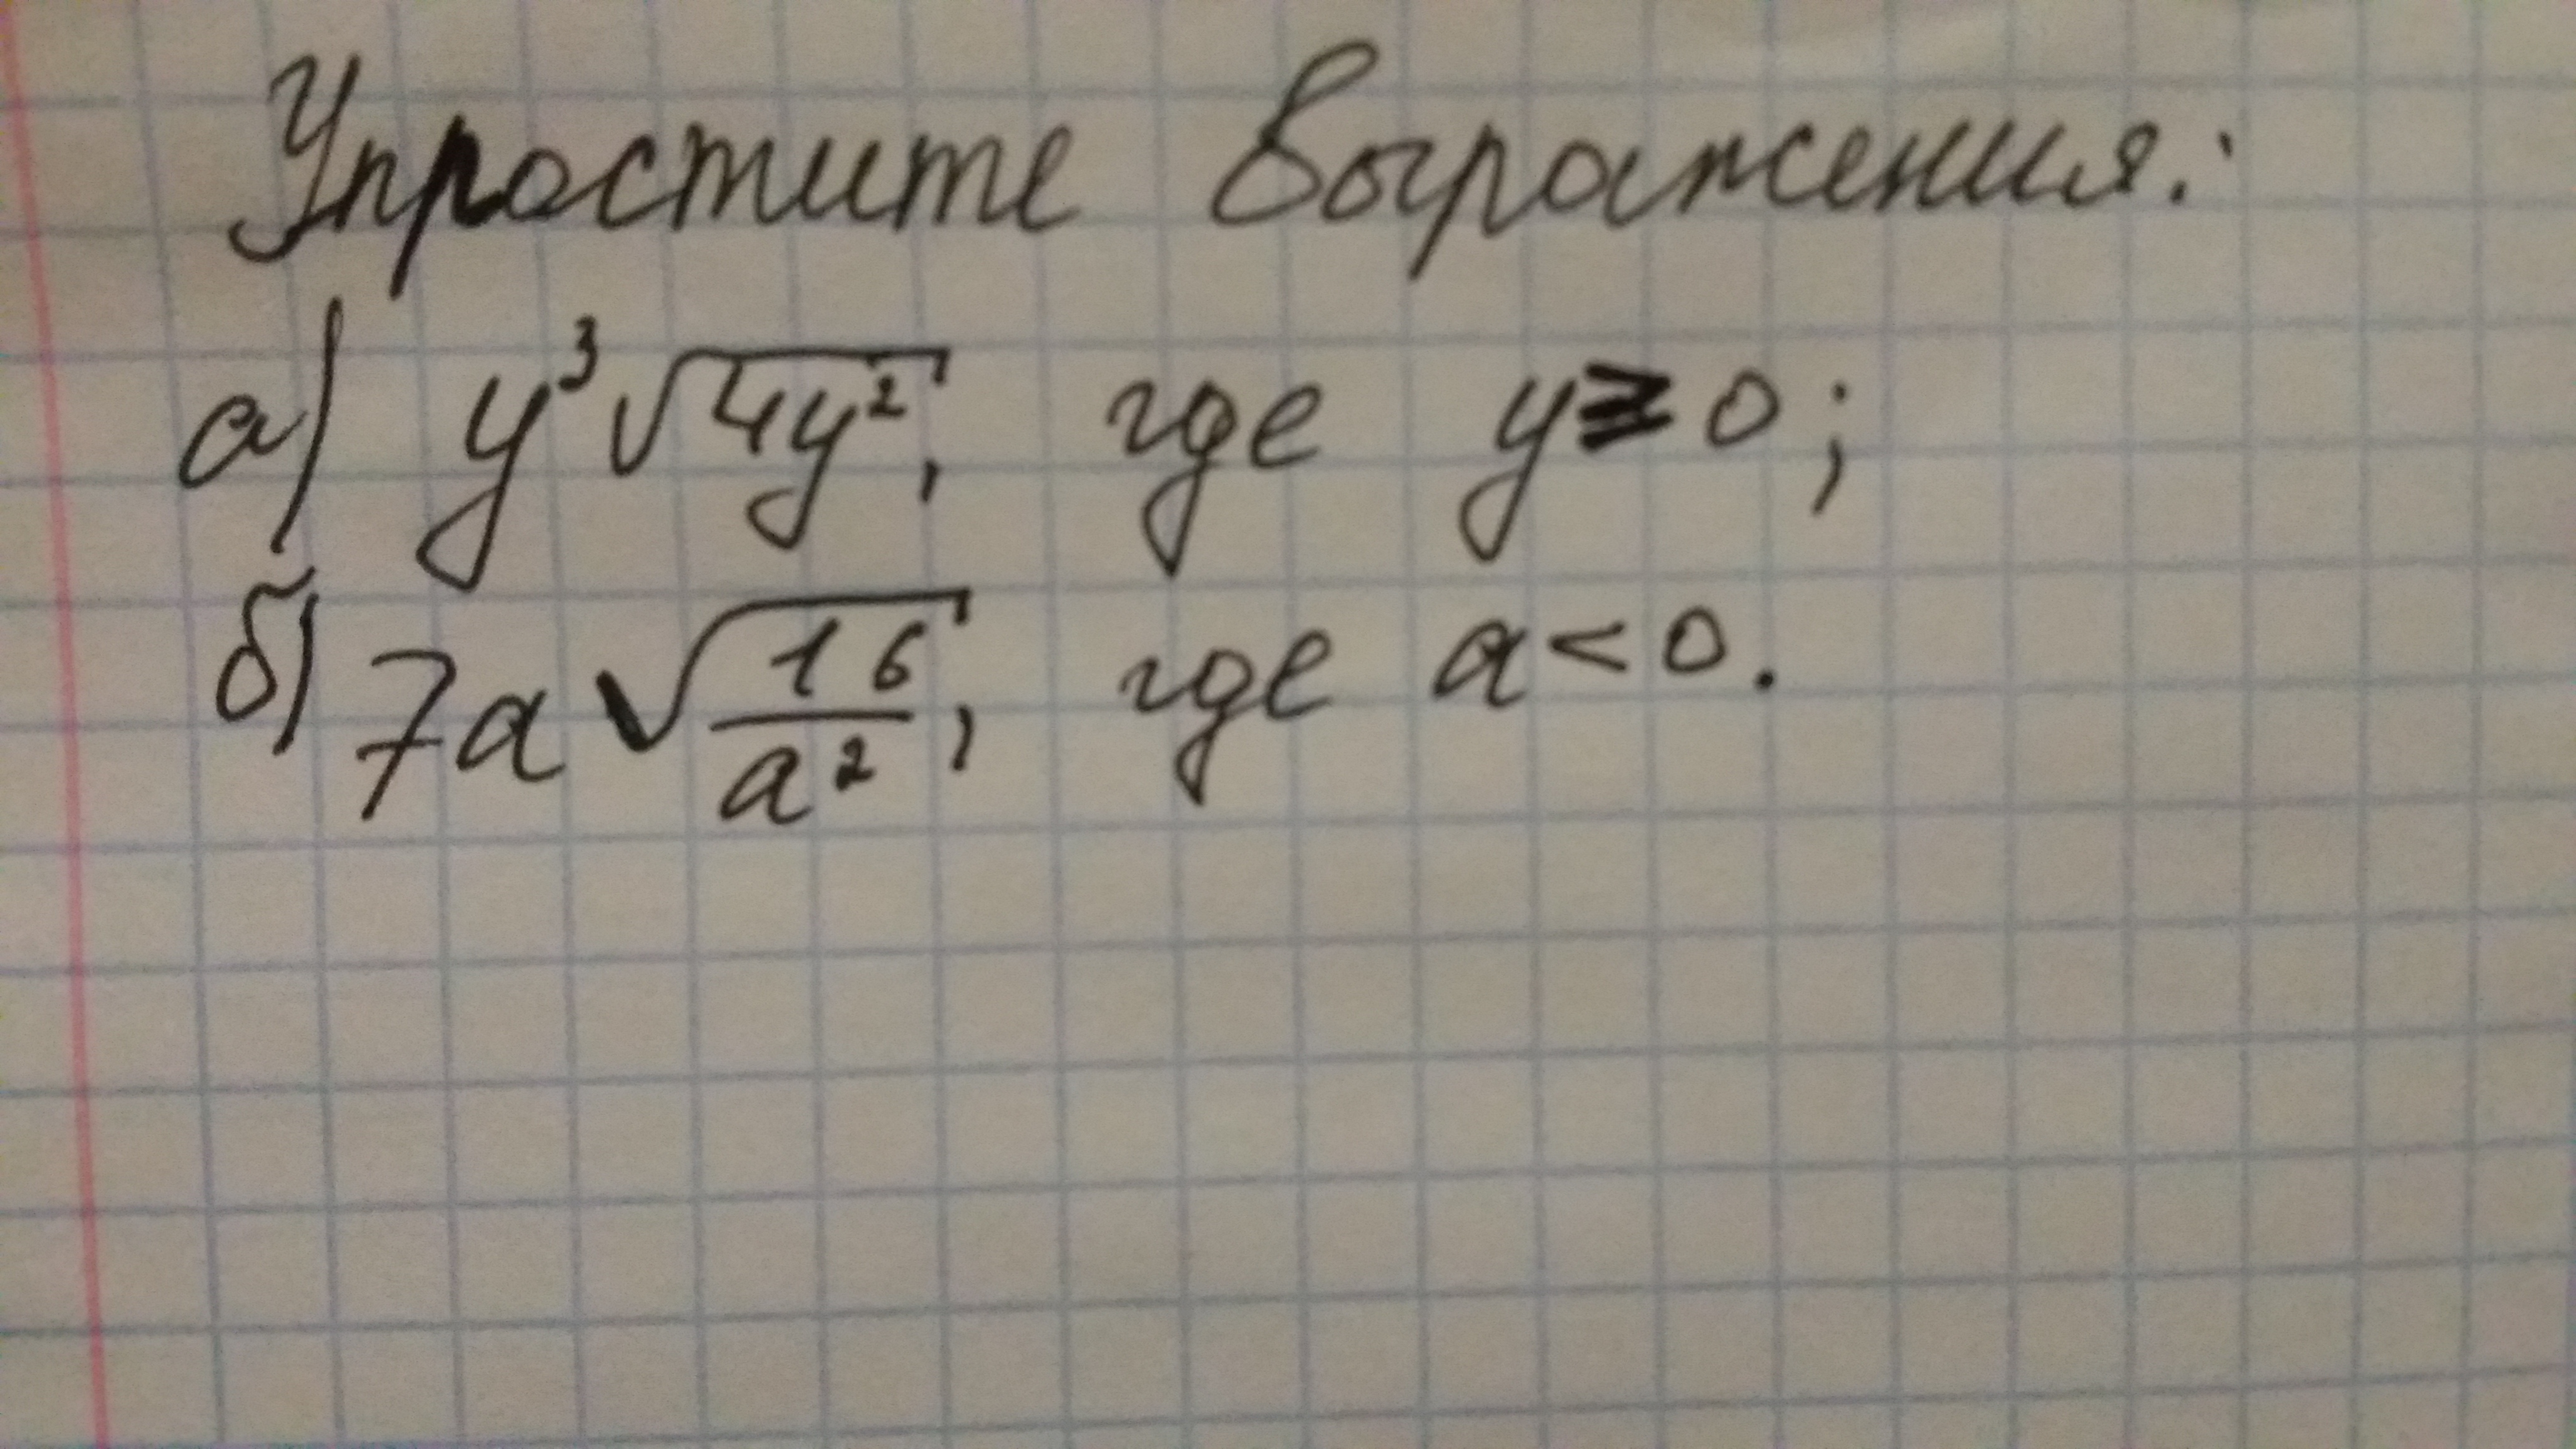 Упростите выражения:
а) y³√4y², где y ≥ 0;
б) 7a√16/a², где a < 0.